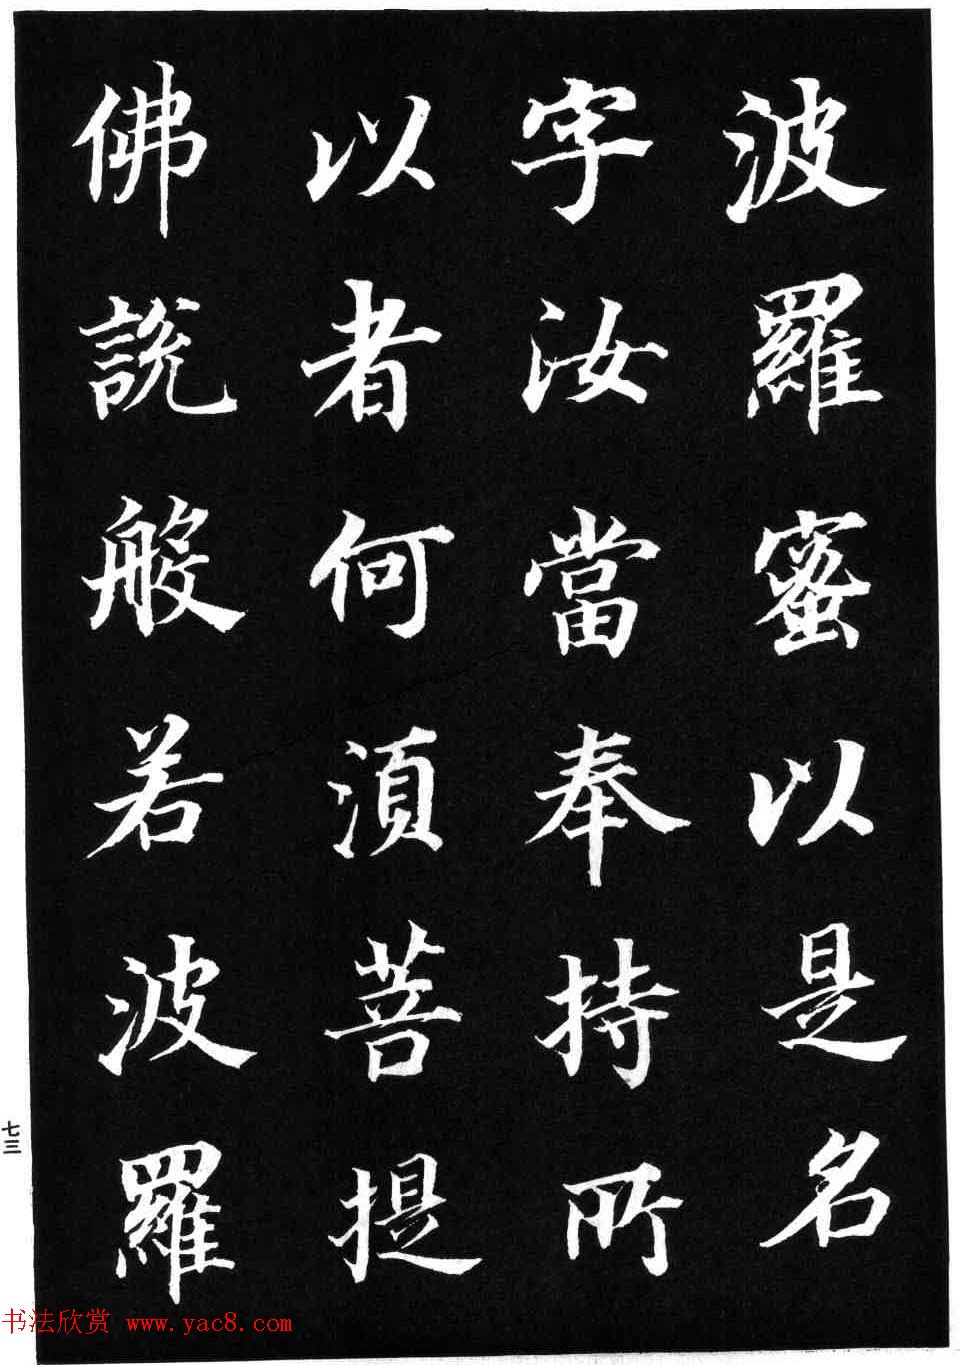 波羅蜜以是名
字汝當奉持所
以者何湏菩提
佛說般若波羅
七三
书法欣赏 www.yac8.com